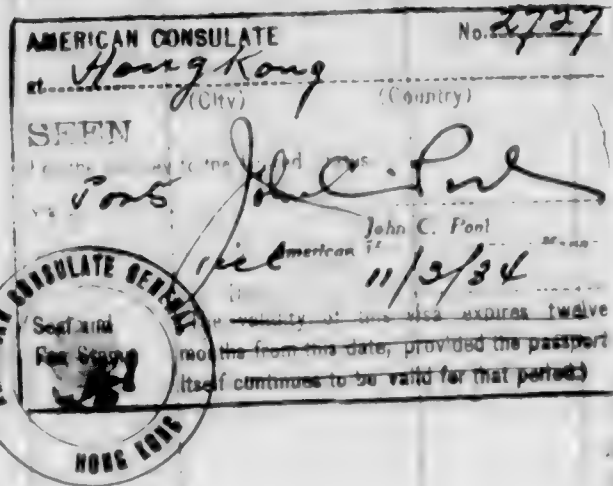 AMERICAN CONSULATE No. 2727
at Hong Kong
(City) (Country)
SEEN
For the journey to the United States
Via Pons John C. Pool
John C. Pool
Vice American
11/3/34
validity of this visa expires twelve
months from this date, provided the passport
itself continues to be valid for that period)
Seal and
Fee Stamp
CONSULATE GENERAL
HONG KONG